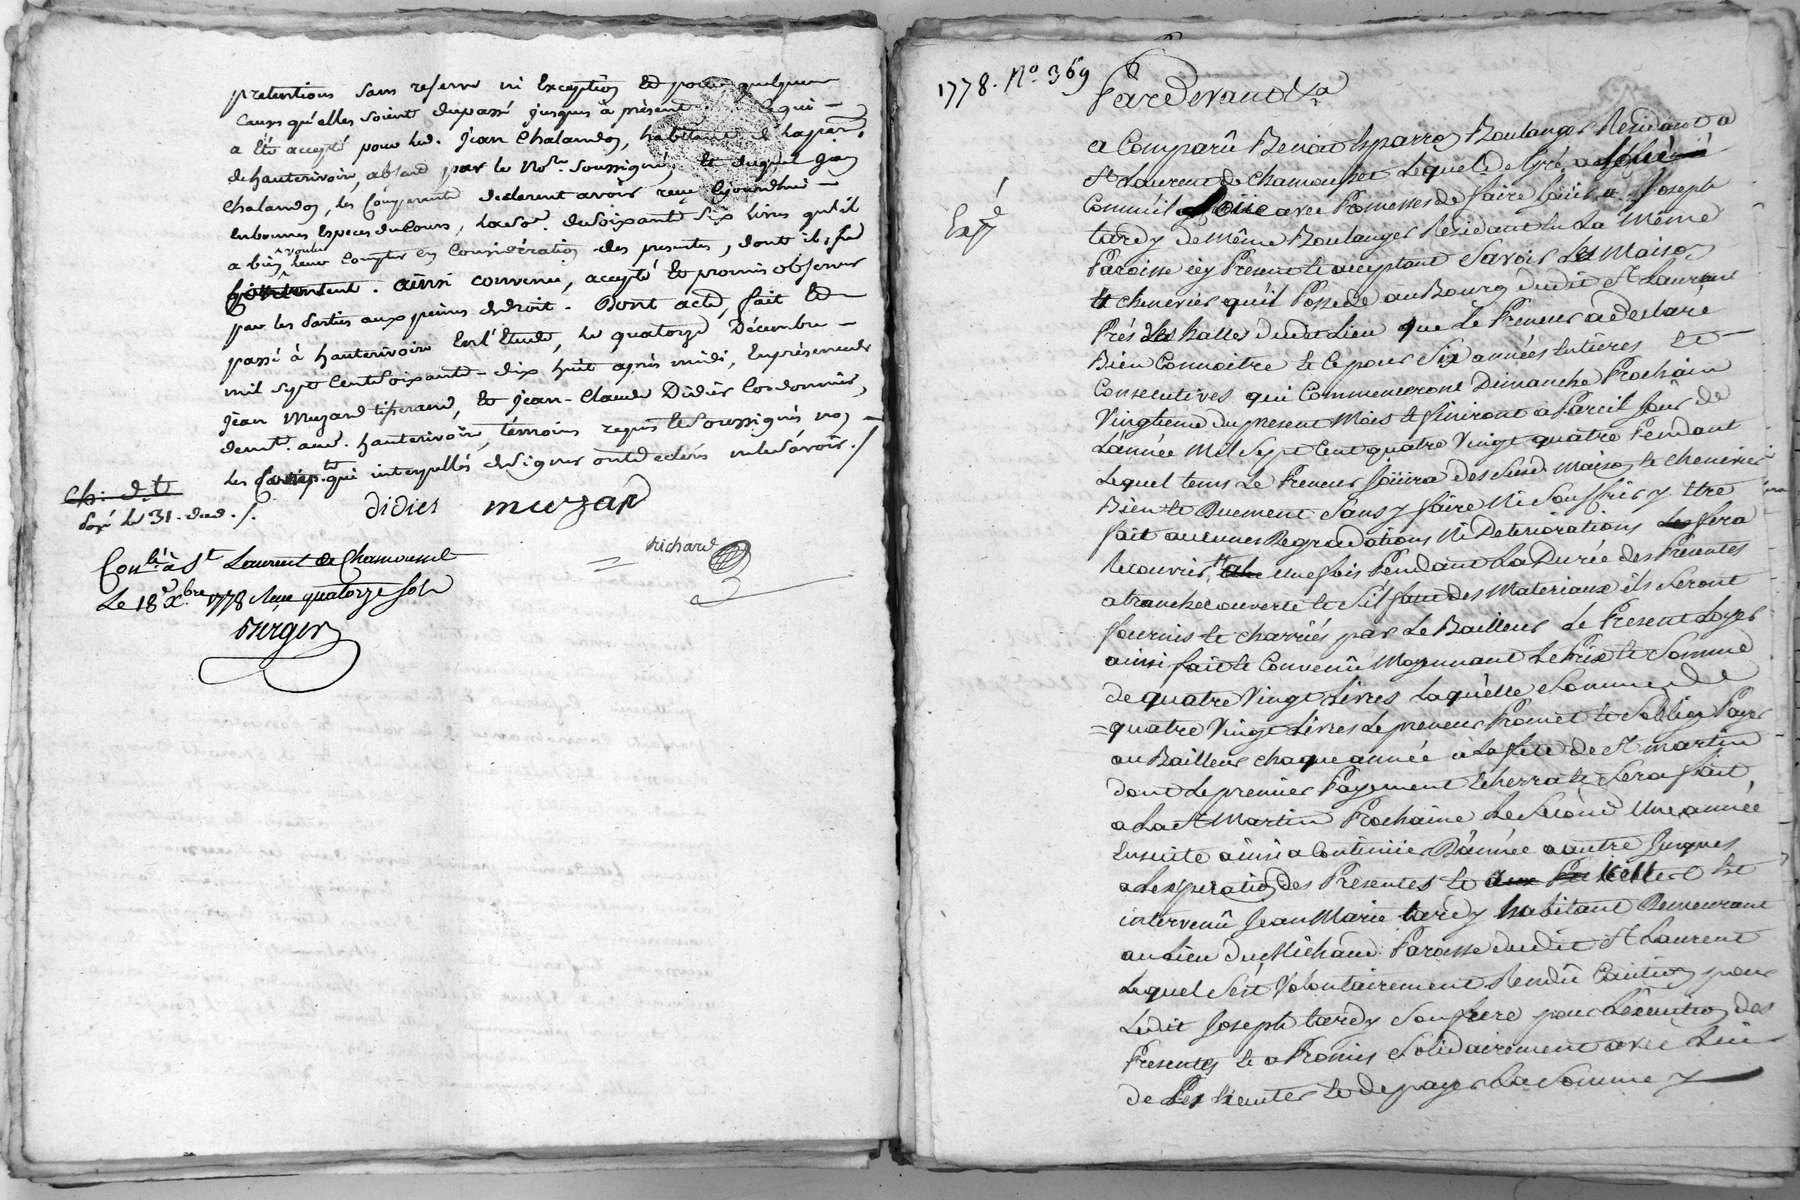 pretentions sans reserve ni Exception Et pour quelques
causes qu'elles soient du passé jusques à présent. Ce qui
a Eté accepté pour led. Jean Chalandon, habitant de la par.
de hauterivoire, absent par le No.re soussigné, Et duquel Jean
Chalandon, les Comparants declarent avoir reçu Cejourdhui
En bonnes Especes du Cours, la somme de soixante six livres qu'il
a bien voulu leur Compter en Considération des presentes, dont ils se
contentent. ainsi convenu, accepté Et promis observer
par les parties aux peines de droit. Dont acte, fait Et
passé à hauterivoire En l'Etude, le quatorze Décembre
mil sept Cent soixante-dix huit après midi, En présence de
Jean Muzard tisserand, Et Jean-Claude Didier Cordonnier,
demt. aud. hauterivoire, témoins requis Et soussignés non
les Comp.ts qui interpellés de signer ont déclaré ne le savoir./
didier muzard
richard
Ch. d. t
Sol le 31. dud./.
Con.lé à St Laurent de Chamousset
Le 18 x.bre 1778 Reçu quatorze sols
Burger
1778. No. 369
Pardevant &a
a Comparû Benoit Esparron Boulanger Residant a
St Laurent de Chamousset Lequel de Gré a affermé
avec Promesses de faire Joüir a Joseph
tardy de même Boulanger Residant en La Même
Paroisse icy Present et acceptant Savoir Les Maison
et chenevier qu'il Possede au Bourg dudit St Laurent
Près Les halles dudit Lieu que Le Preneur a declaré
Bien Connoitre et Ce pour Six années Entieres et
Consecutives qui Commenceront Dimanche Prochain
Vingtieme du present Mois et finiront a Pareil Jour de
L'année Mil Sept Cent quatre Vingt quatre Pendant
Lequel tems Le Preneur Joüira des Susd. Maison et chenevier
Bien et Duement Sans y faire Ni Souffrir y Etre
fait aucunes Degradations Ni Deteriorations Les fera
Recouvrir une fois Pendant La Durée des Presentes
a tranche couverte et S'il faut des Materiaux ils Seront
fournis et charriés par Le Bailleur Le Present Loyer
ainsi fait et Convenû Moyennant Le Prix et Somme
de quatre Vingt Livres Laquelle Somme de
=quatre Vingt Livres Le preneur Promet et S'oblige Payer
au Bailleur chaque année a La fete de St martin
dont Le premier Payement Echerra et Sera fait
a La St Martin Prochaine Le Second Une année
Ensuite ainsi a Continüer D'année a autre Jusques
a L'expiration des Presentes et
intervenû Jean Marie tardy habitant Demeurant
au Lieu du Michaud Paroisse dudit St Laurent
Lequel S'est Volontairement Rendû Caution pour
Ledit Joseph tardy Son frere pour L'execution des
Presentes et a Promis Solidairement avec Lui
de Les Executer et de payer La Somme y